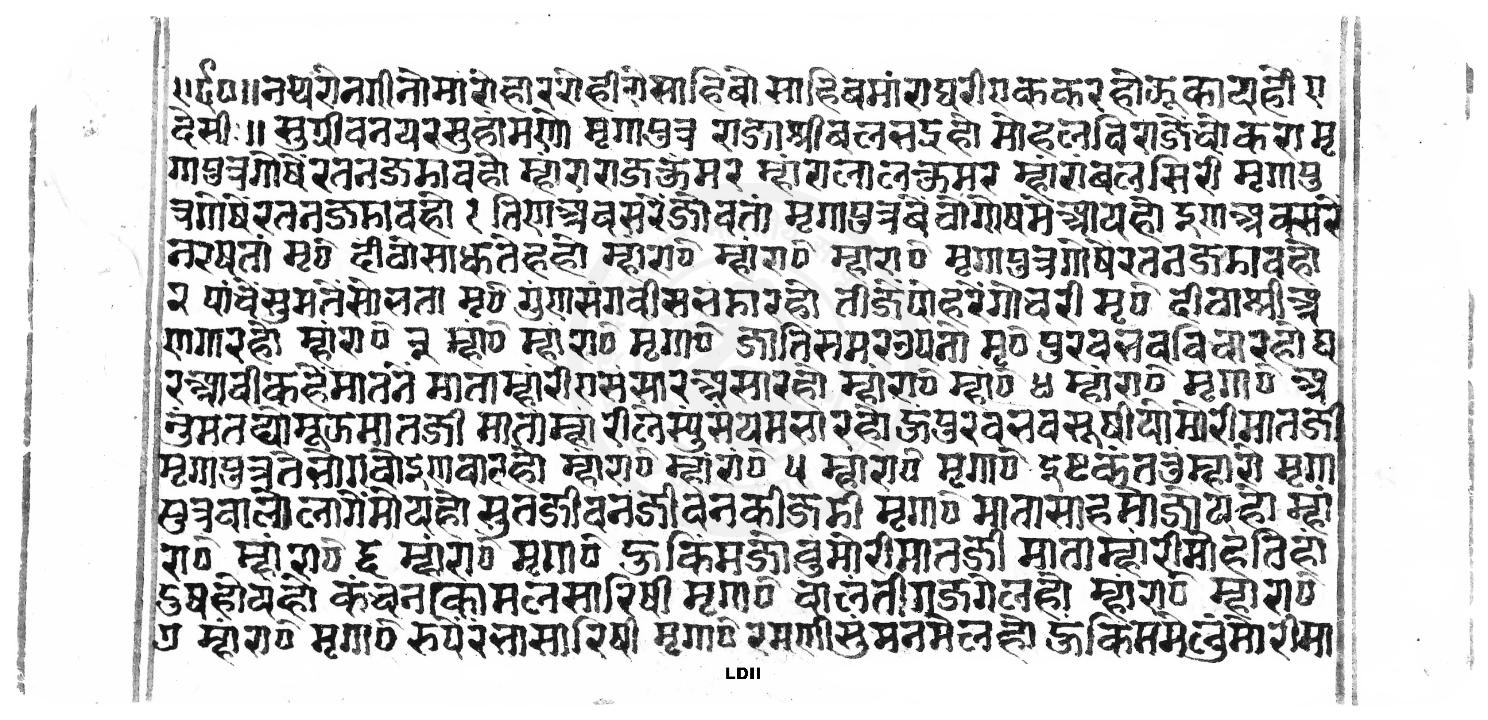 ॥र्द०॥नथरोनगीनोमारोहाररोहीरोसाहिबो साहिबमांराघरीएककरहोकूकायहो ए
देसी॥ सुग्रीवनयरसुहामणो मृगापुत्र राजाश्रीबलभद्रहो मोहलविराजेबेठोकरा मृ
गापुत्रगोषेरतनजडावहो म्हाराराजकुंमर म्हांरालालकुमर म्हांराबलसिरी मृगापु
त्रगोषेरतनजडावहो १ तिणअवसरेजोवतां मृगापुत्रबेठोगोषमेआयहो इणअवसरे
नरषतां मृ० दीठोसाधतेहहो म्हांरा० म्हांरा० म्हारा० मृगापुत्रगोषेरतनजडावहो
२ पांचेसुमतेसोभता मृ० गुणसंगवीसभडारहो तीजेपोहरेगोचरी मृ० दीठाश्रीअ
णगारहो म्हांरा० ३ म्हां० म्हांरा० मृगा० जातिसमरउपतो मृ० पुरवभवविचारहो घ
रआवीकहेमातने माताम्हांरीएसंसारअसारहो म्हांरा० म्हां० ४ म्हांरा० मृगा० अ
नुमतद्योमूऊमातजी माताम्हांरीलेस्युंसंयमभारहो ऊपुरवभवसूषीयोमोरीमातजी
मृगापुत्रतेभोगवोइणवारहो म्हांरा० म्हांरा० ५ म्हांरा० मृगा० इष्टकंततुंम्हारो मृगा
पुत्रवालोलागेमोयहो सुतजीवनजीवनकीजडी मृगा० मातासाहमोजोयहो म्हां
रा० म्हांरा० ६ म्हांरा० मृगा० ऊकिमजोवुमोरीमातजी माताम्हारीमोहतिहां
दुषहोयहो कंचनकोमलसारिषी मृगा० चालंतीगजगेलहो म्हारा० म्हारा०
७ म्हांरा० मृगा० रुपेरंभासारिषी मृगा० रमणीसुमनमेलहो ऊकिममेलुंमोरीमा
LDII